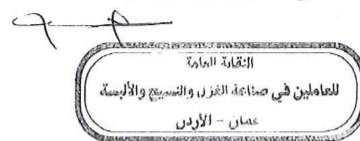 النقابة العامة
للعاملين في صناعة الغزل والنسيج والألبسة
عمان - الأردن